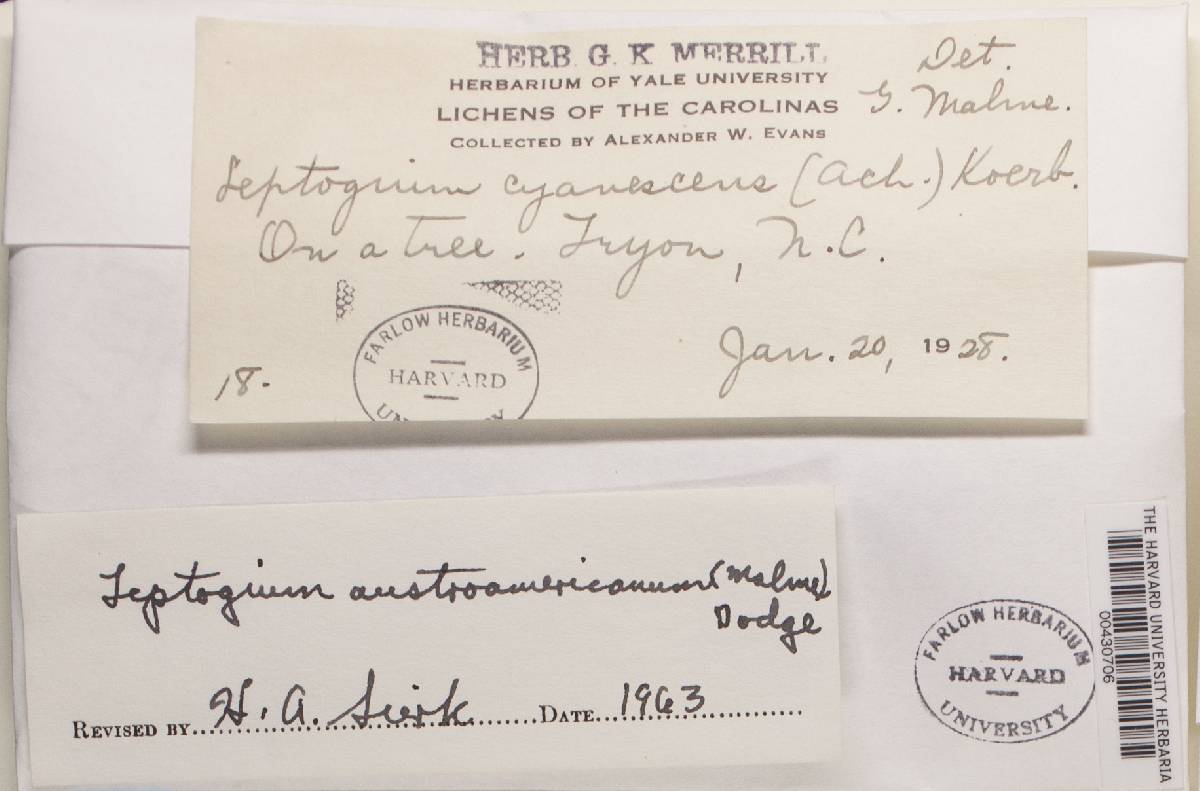 HERB. G. K. MERRILL
HERBARIUM OF YALE UNIVERSITY
LICHENS OF THE CAROLINAS
COLLECTED BY ALEXANDER W. EVANS
Det.
G. Malme.
Leptogium cyanescens (Ach.) Koerb.
On a tree. Tryon, N.C.
FARLOW HERBARIUM
HARVARD
UNIVERSITY
Jan. 20, 1928.
18.
Leptogium austroamericanum (Malme)
Dodge
REVISED BY H. A. Sierk DATE 1963
FARLOW HERBARIUM
HARVARD
UNIVERSITY
THE HARVARD UNIVERSITY HERBARIA
00430706